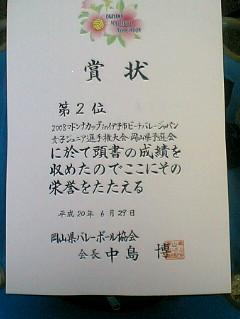 賞状
第2位
2008マドンナカップin伊予市ビーチバレージャパン
女子ジュニア選手権大会 岡山県予選会
に於て頭書の成績を
収めたのでここにその
栄誉をたたえる
平成20年 6月29日
岡山県バレーボール協会
会長 中島 博